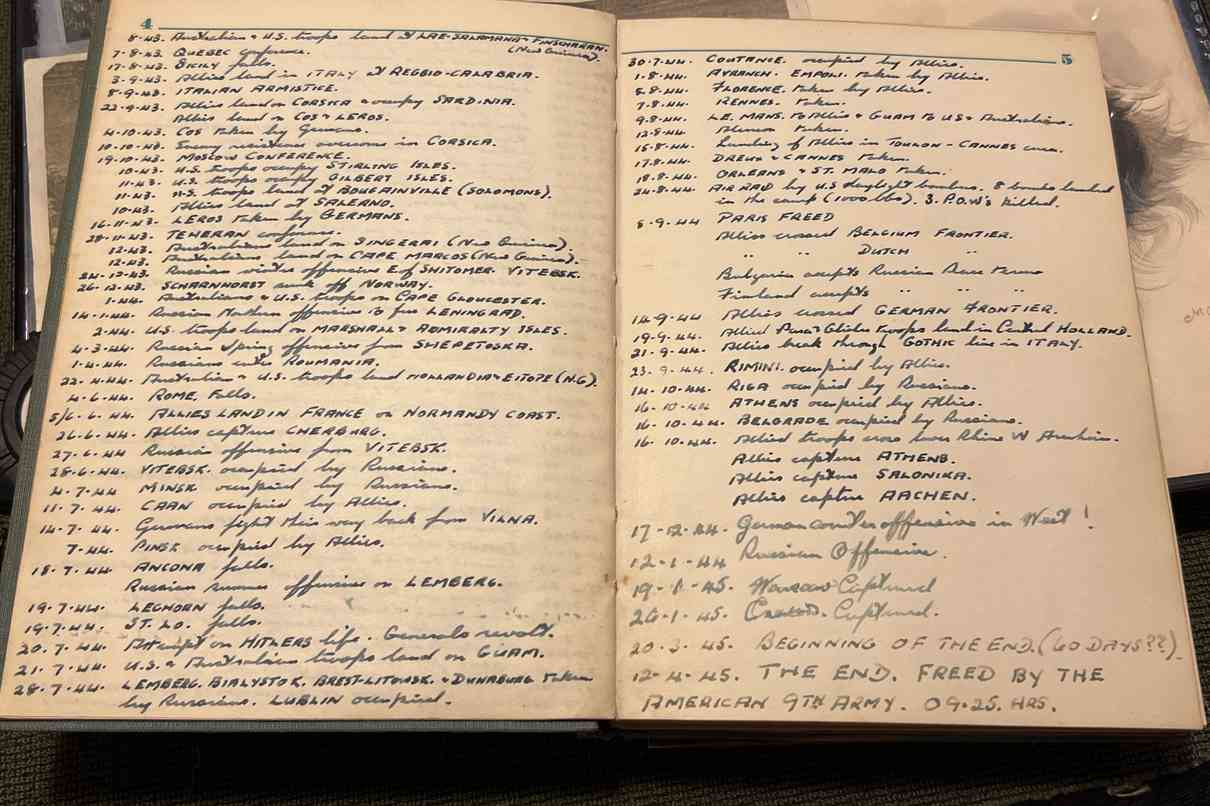 4
8-43. Australian & U.S. troops land at LAE-SALAMANA & FINSCHAFEN.
(New Guinea).
7-8-43. QUEBEC conference.
17-8-43. SICILY falls.
3-9-43. Allies land in ITALY at REGGIO-CALABRIA.
8-9-43. ITALIAN ARMISTICE.
22-9-43. Allies land on CORSICA & occupy SARDINIA.
Allies land on COS & LEROS.
4-10-43. COS taken by Germans.
10-10-43. Enemy resistance overcome in CORSICA.
19-10-43. MOSCOW CONFERENCE.
10-43. U.S. troops occupy STIRLING ISLES.
11-43. U.S. troops occupy GILBERT ISLES.
11-43. U.S. troops land at BOUGAINVILLE (SOLOMONS).
10-43. Allies land at SALERNO.
16-11-43. LEROS taken by GERMANS.
28-11-43. TEHERAN conference.
12-43. Australians land on SINGERAI (New Guinea).
12-43. Australians land on CAPE MARCOS (New Guinea).
24-12-43. Russian winter offensive E of SHITOMER VITEBSK.
26-12-43. SCHARNHORST sunk off NORWAY.
1-44. Australians & U.S. troops on CAPE GLOUCESTER.
14-1-44. Russian Northern offensive to free LENINGRAD.
2-44. U.S. troops land on MARSHALL & ADMIRALTY ISLES.
4-3-44. Russian Spring offensive from SHEPETOSKA.
1-4-44. Russians enter ROUMANIA.
22-4-44. Australian & U.S. troops land HOLLANDIA & EITOPE (N.G).
4-6-44. ROME. Falls.
5/6-6-44. ALLIES LAND IN FRANCE on NORMANDY COAST.
26-6-44. Allies capture CHERBURG.
27-6-44 Russian offensive from VITEBSK.
28-6-44. VITEBSK. occupied by Russians.
4-7-44 MINSK occupied by Russians.
11-7-44. CAAN occupied by Allies.
14-7-44. Germans fight their way back from VILNA.
7-44. PINSK occupied by Allies.
18-7-44 ANCONA falls.
Russian summer offensive on LEMBERG.
19-7-44. LEGHORN falls.
19-7-44. ST. LO. falls.
20-7-44. Attempt on HITLERS life. Generals revolt.
21-7-44. U.S. & Australians troops land on GUAM.
28-7-44. LEMBERG. BIALYSTOK, BREST-LITOVSK. & DUNABURG taken
by Russians. LUBLIN occupied.
5
30-7-44. COUTANCE. occupied by Allies.
1-8-44. AVRANCH. EMPOLI. taken by Allies.
5-8-44. FLORENCE. taken by Allies.
7-8-44. RENNES. taken.
9-8-44. LE. MANS. to Allies & GUAM to US & Australians.
12-8-44. Alencon taken.
15-8-44. Landing of Allies in TOULON - CANNES area.
17-8-44. DREUX & CANNES taken.
18-8-44. ORLEANS & ST. MALO taken.
24-8-44. AIR RAID by U.S daylight bombers. 8 bombs landed
in the camp (1000 lbs). 3. P.O.W's killed.
5-9-44 PARIS FREED
Allies crossed BELGIUM FRONTIER.
" " DUTCH "
Bulgaria accepts Russian Peace terms
Finland accepts " " "
14-9-44 Allies crossed GERMAN FRONTIER.
19-9-44. Allied Para & Glider troops land in Central HOLLAND.
21-9-44. Allies break through GOTHIC line in ITALY.
23-9-44. RIMINI. occupied by Allies.
14-10-44. RIGA occupied by Russians.
16-10-44 ATHENS occupied by Allies.
16-10-44. BELGRADE occupied by Russians.
16-10-44. Allied troops cross lower Rhine W Arnheim.
Allies capture ATHENS.
Allies capture SALONIKA.
Allies capture AACHEN.
17-12-44. German counter offensive in West!
12-1-44 Russian Offensive.
19-1-45. Warsaw Captured
20-1-45. Captured.
20-3-45. BEGINNING OF THE END. (60 DAYS??).
12-4-45. THE END. FREED BY THE
AMERICAN 9TH ARMY. 09.25. HRS.